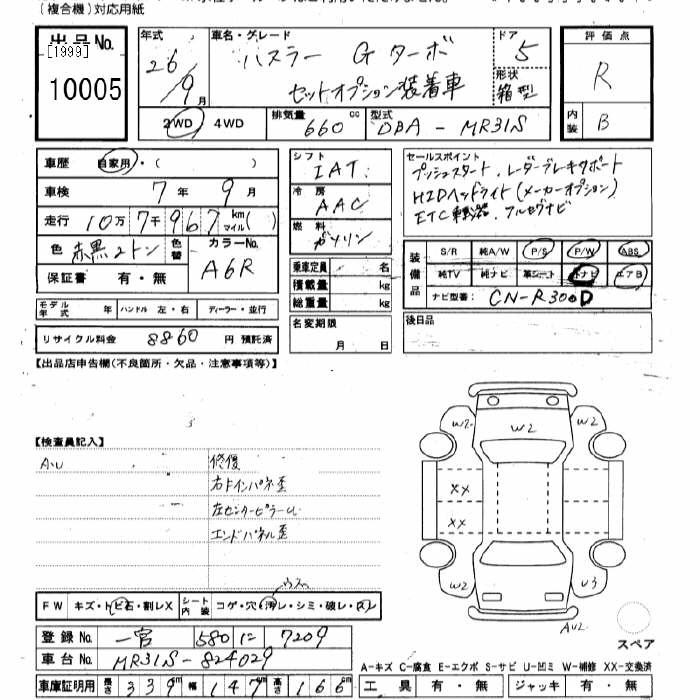 (複合機)対応用紙
出品No.
[1999]
10005
年式 26/9月
車名・グレード ハスラー Gターボ
セットオプション装着車
ドア 5
形状 箱型
2WD 4WD
排気量 660cc
型式 DBA-MR31S
評価点 R
内装 B
車歴 自家用・( )
車検 7年 9月
走行 10万7千967km(マイル)
色 赤黒2トン 色替
カラーNo. A6R
保証書 有・無
モデル年式 年 ハンドル 左・右 ディーラー・並行
リサイクル料金 8860円 預託済
シフト IAT
冷房 AAC
燃料 ガソリン
乗車定員 名
積載量 kg
総重量 kg
名変期限 月 日
セールスポイント
プッシュスタート、レーダーブレーキサポート
HIDヘッドライト(メーカーオプション)
ETC車載器、フルセグナビ
装備品
S/R 純A/W P/S P/W ABS
純TV 純ナビ 革シート ナビ エアB
ナビ型番 CN-R300D
後日品
【出品店申告欄(不良箇所・欠品・注意事項等)】
【検査員記入】
A・U
修復
右トインパネ歪
左センターピラーU
エンドパネル歪
FW キズ・トビ石・割レX シート内装 コゲ・穴・汚レ・シミ・破レ・スレ
登録No. 一宮 580 に 7209
車台No. MR31S-824029
車庫証明用 長さ 339cm 幅 147cm 高さ 166cm
W2 W2 W2
XX
XX
W2 U3
AU2
スペア
A-キズ C-腐食 E-エクボ S-サビ U-凹ミ W-補修 XX-交換済
工具 有・無 ジャッキ 有・無